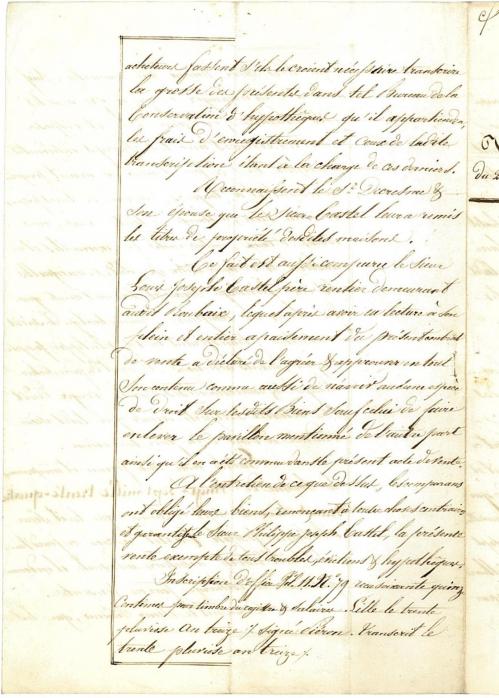 acheteurs fassent s'ils le croient nécessaire transcrire
la grosse des présentes dans tel Bureau de la
Conservation d'hypothèques qu'il appartiendra,
les frais d'enregistrement et ceux de ladite
transcription étant à la charge de ces derniers.
Reconnaissent le Sr. Decresme &
son épouse que le Sieur Castel leur a remis
les titres de propriété desdites maisons.
Ce fait est aussi comparu le Sieur
Louis Joseph Castel père rentier demeurant
audit Roubaix, lequel après avoir eu lecture à son
plein et entier apaisement du présent contrat
de vente a déclaré de l'agréer & approuver en tout
son contenu comme aussi de n'avoir aucune espèce
de droit sur lesdits Biens sauf celui de faire
enlever le pavillon mentionné de l'autre part
ainsi qu'il en a été convenu dans le présent acte de vente.
A l'entretien de ce que dessus, les comparans
ont obligé leurs biens, renonçant à toutes choses contraires
et garantit le Sieur Philippe Joseph Castel, la présente
vente exempte de tous troubles, évictions & hypothèques.
Inscription
soixante quinze
Centimes pour timbre du registre & salaires. Lille le trente
pluviose an treize /. signé Transcrit le
trente pluviose an treize /.
du 2